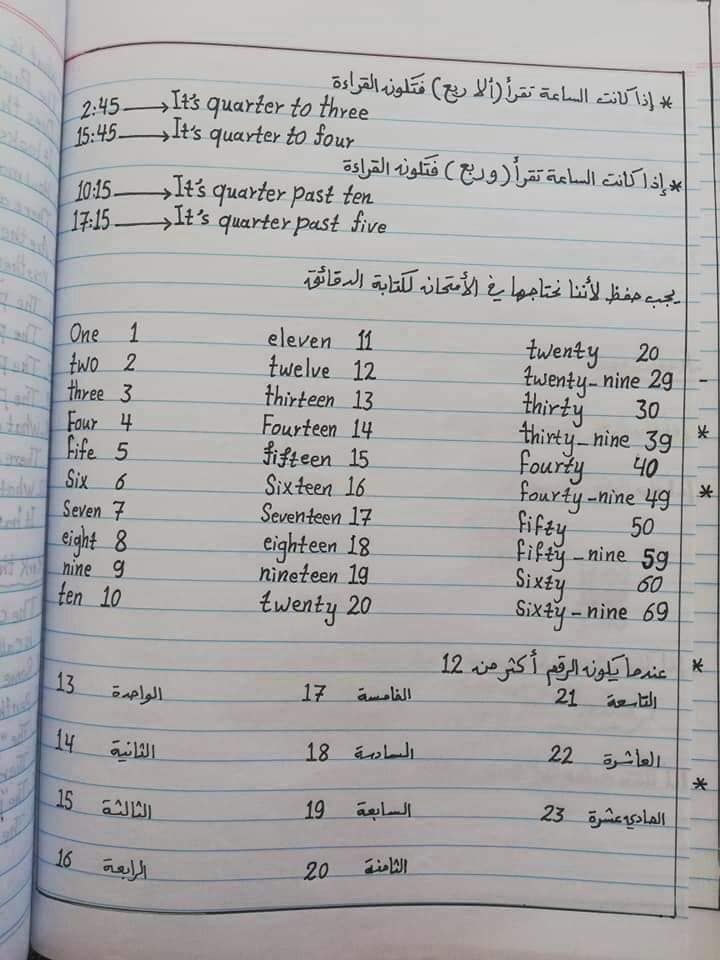 * إذا كانت الساعة تقرأ (ألا ربع) فتكون القراءة
2:45 → It's quarter to three
15:45 → It's quarter to four
* إذا كانت الساعة تقرأ (وربع) فتكون القراءة
10:15 → It's quarter past ten
17:15 → It's quarter past five
يجب حفظ لأننا نحتاجها في الأمتحان لكتابة الدقائق
One 1 eleven 11 twenty 20
two 2 twelve 12 twenty-nine 29
three 3 thirteen 13 thirty 30
Four 4 Fourteen 14 thirty-nine 39
Fife 5 fifteen 15 fourty 40
Six 6 Sixteen 16 fourty-nine 49
Seven 7 Seventeen 17 fifty 50
eight 8 eighteen 18 fifty-nine 59
nine 9 nineteen 19 Sixty 60
ten 10 twenty 20 Sixty-nine 69
عندما يكون الرقم أكثر من 12
13 الواحدة 17 الخامسة 21 التاسعة
14 الثانية 18 السادسة 22 العاشرة
15 الثالثة 19 السابعة 23 الحادي عشرة
16 الرابعة 20 الثامنة